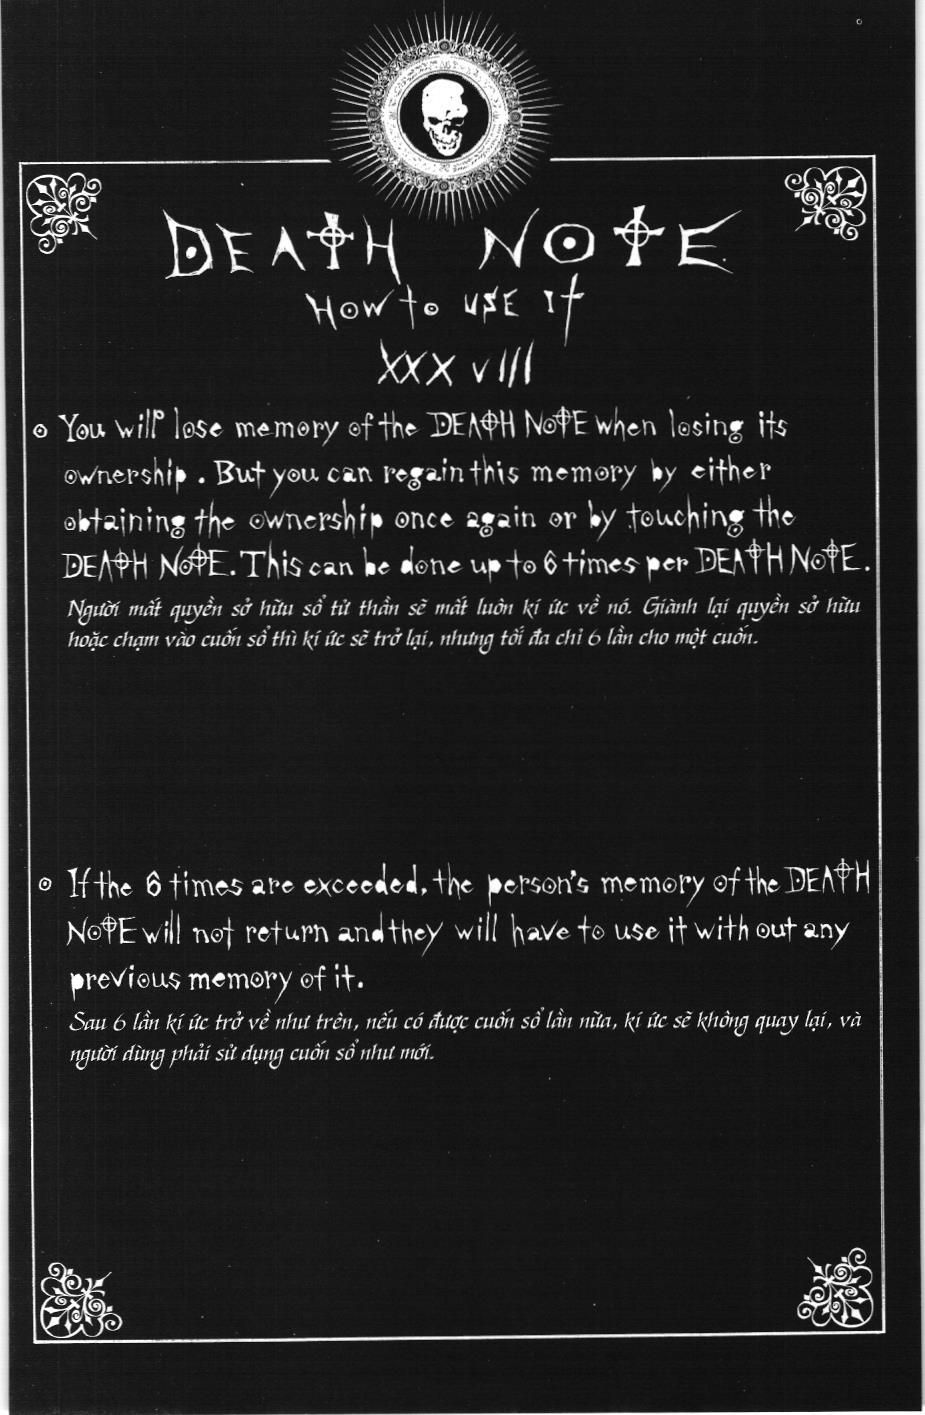 DEATH NOTE
HOW to USE It
XXXVIII
You will lose memory of the DEATH NOTE when losing its
ownership. But you can regain this memory by either
obtaining the ownership once again or by touching the
DEATH NOTE. This can be done up to 6 times per DEATH NOTE.
Người mất quyền sở hữu sổ tử thần sẽ mất luôn kí ức về nó. Giành lại quyền sở hữu
hoặc chạm vào cuốn sổ thì kí ức sẽ trở lại, nhưng tối đa chỉ 6 lần cho một cuốn.
If the 6 times are exceeded, the person's memory of the DEATH
NOTE will not return and they will have to use it with out any
previous memory of it.
Sau 6 lần kí ức trở về như trên, nếu có được cuốn sổ lần nữa, kí ức sẽ không quay lại, và
người dùng phải sử dụng cuốn sổ như mới.